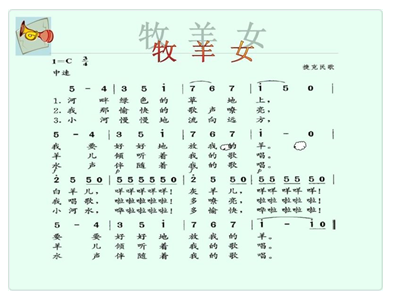 牧 羊 女
牧 羊 女
1=C 3/4
捷克民歌
中速
5 - 4 | 3 5 i | 7 6 7 | i 5 0
1.河 畔 绿 色 的 草 地 上,
2.我 那 愉 快 的 歌 声 嘹 亮,
3.小 河 慢 慢 地 流 向 远 方,
5 - 4 | 3 5 i | 7 6 7 | i - 0
我 要 好 好 地 放 我 的 羊。
羊 儿 好 倾 听 着 我 的 歌 唱。
水 声 伴 随 着 我 的 歌 唱。
2 5 5 0 | 5 5 5 5 5 0
白 羊 儿, 咩 咩 咩 咩! 灰 羊 儿, 咩 咩 咩 咩!
我 歌 儿, 啦 啦 啦 啦! 多 嘹 亮, 啦 啦 啦 啦!
小 河 水, 哗 啦 啦 啦! 多 愉 快, 哗 啦 啦 啦!
5 - 4 | 3 5 i | 7 6 7 | i - i 0
我 要 好 好 地 放 我 的 羊。
羊 儿 倾 听 着 我 的 歌 唱。
水 声 伴 随 着 我 的 歌 唱。